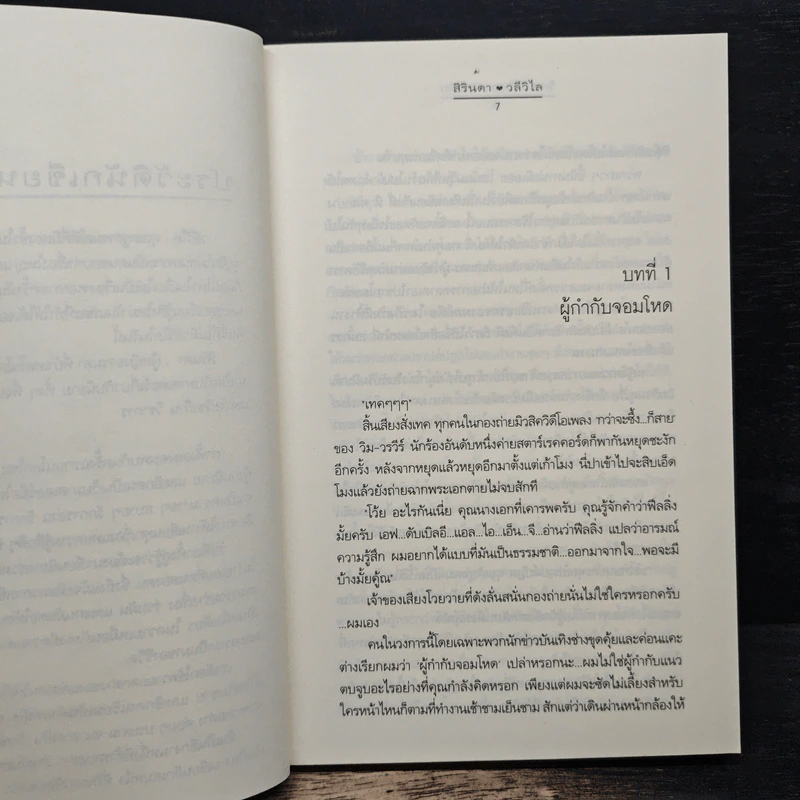 สิรินดา ❤ วลีวิไล
7
บทที่ 1
ผู้กำกับจอมโหด
"เทคๆๆๆ"
สิ้นเสียงสั่งเทค ทุกคนในกองถ่ายมิวสิควิดีโอเพลง 'กว่าจะซึ้ง...ก็สาย'
ของ วิม-วรวีร์ นักร้องอันดับหนึ่งค่ายสตาร์เรคคอร์ดก็พากันหยุดชะงัก
อีกครั้ง หลังจากหยุดแล้วหยุดอีกมาตั้งแต่เก้าโมง นี่ปาเข้าไปจะสิบเอ็ด
โมงแล้วยังถ่ายฉากพระเอกตายไม่จบสักที
"โว้ย อะไรกันเนี่ย คุณนางเอกที่เคารพครับ คุณรู้จักคำว่าฟีลลิ่ง
มั้ยครับ เอฟ...ดับเบิลอี...แอล...ไอ...เอ็น...จี...อ่านว่าฟีลลิ่ง แปลว่าอารมณ์
ความรู้สึก ผมอยากได้แบบที่มันเป็นธรรมชาติ...ออกมาจากใจ...พอจะมี
บ้างมั้ยคู้ณ"
เจ้าของเสียงโวยวายที่ดังลั่นสนั่นกองถ่ายนั่นไม่ใช่ใครหรอกครับ
...ผมเอง
คนในวงการนี้โดยเฉพาะพวกนักข่าวบันเทิงช่างขุดคุ้ยและค่อนแคะ
ต่างเรียกผมว่า 'ผู้กำกับจอมโหด' เปล่าหรอกนะ...ผมไม่ใช่ผู้กำกับแนว
ตบจูบอะไรอย่างที่คุณกำลังคิดหรอก เพียงแต่ผมจะซัดไม่เลี้ยงสำหรับ
ใครหน้าไหนก็ตามที่ทำงานเช้าชามเย็นชาม สักแต่ว่าเดินผ่านหน้ากล้องให้